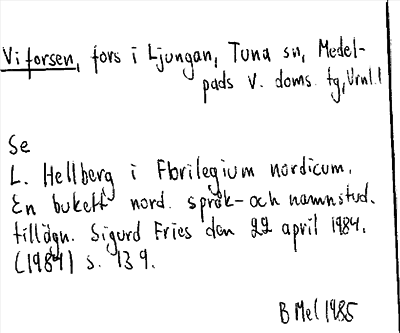 Viforsen, fors i Ljungan, Tuna sn, Medel-
pads v. doms. tg, Vrnl.l
Se
L. Hellberg i Florilegium nordicum.
En bukett nord. språk- och namnstud.
tillägn. Sigurd Fries den 22 april 1984.
(1984) s. 139.
B Mel 1985